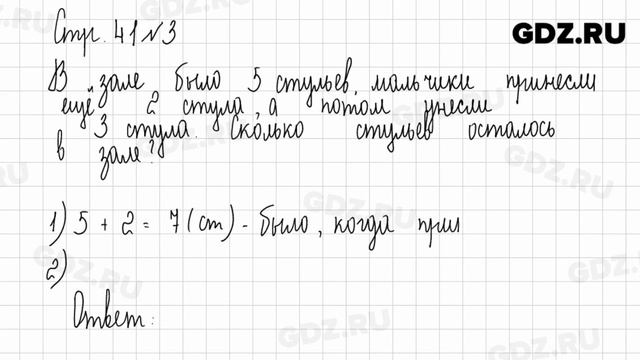 Стр. 41 №3
GDZ.RU
В зале было 5 стульев, мальчики принесли
ещё 2 стула, а потом унесли
3 стула. Сколько стульев осталось
в зале?
1) 5 + 2 = 7 (ст) - было, когда при
2)
Ответ:
GDZ.RU
GDZ.RU
GDZ.RU
GDZ.RU
GDZ.RU